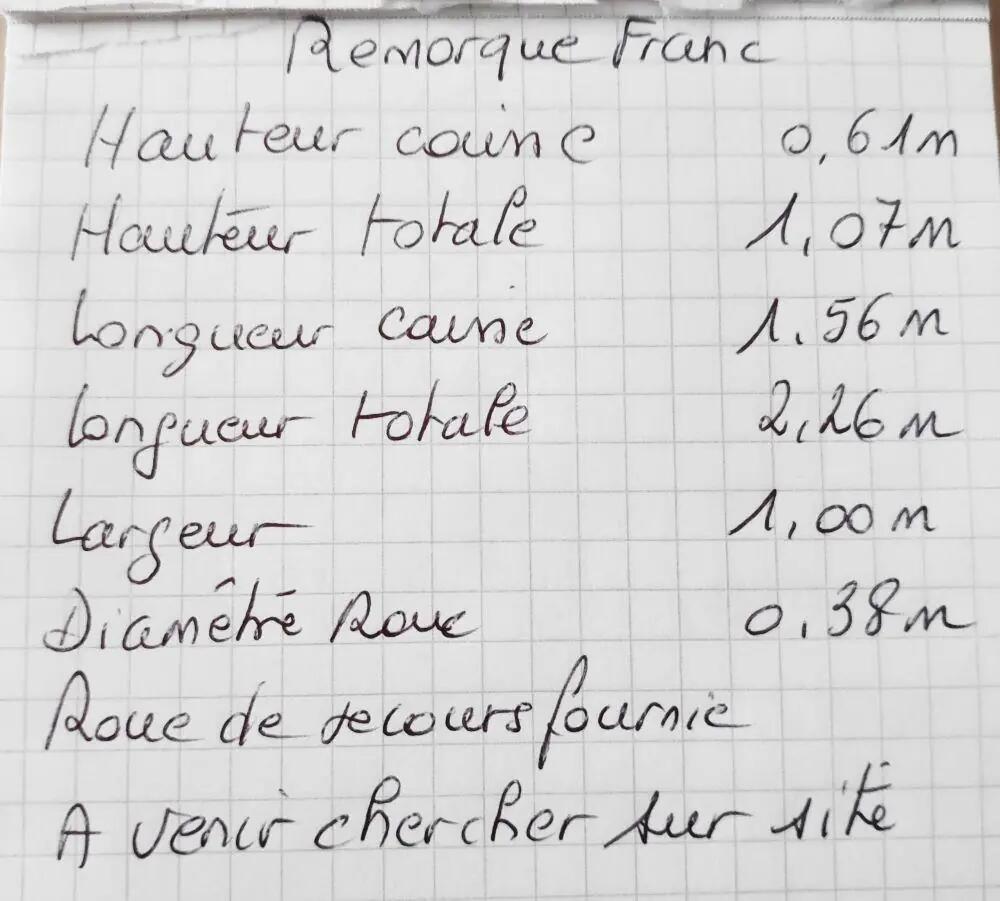 Remorque Franc
Hauteur caisse 0,61m
Hauteur totale 1,07m
Longueur caisse 1.56m
Longueur totale 2,26m
Largeur 1,00m
Diamêtre Roue 0.38m
Roue de secours fournie
A venir chercher sur site